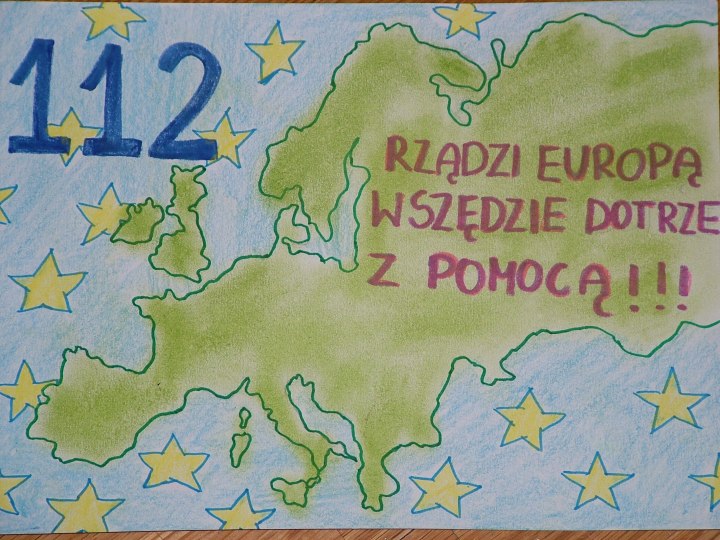 112
RZĄDZI EUROPĄ
WSZĘDZIE DOTRZE
Z POMOCĄ!!!